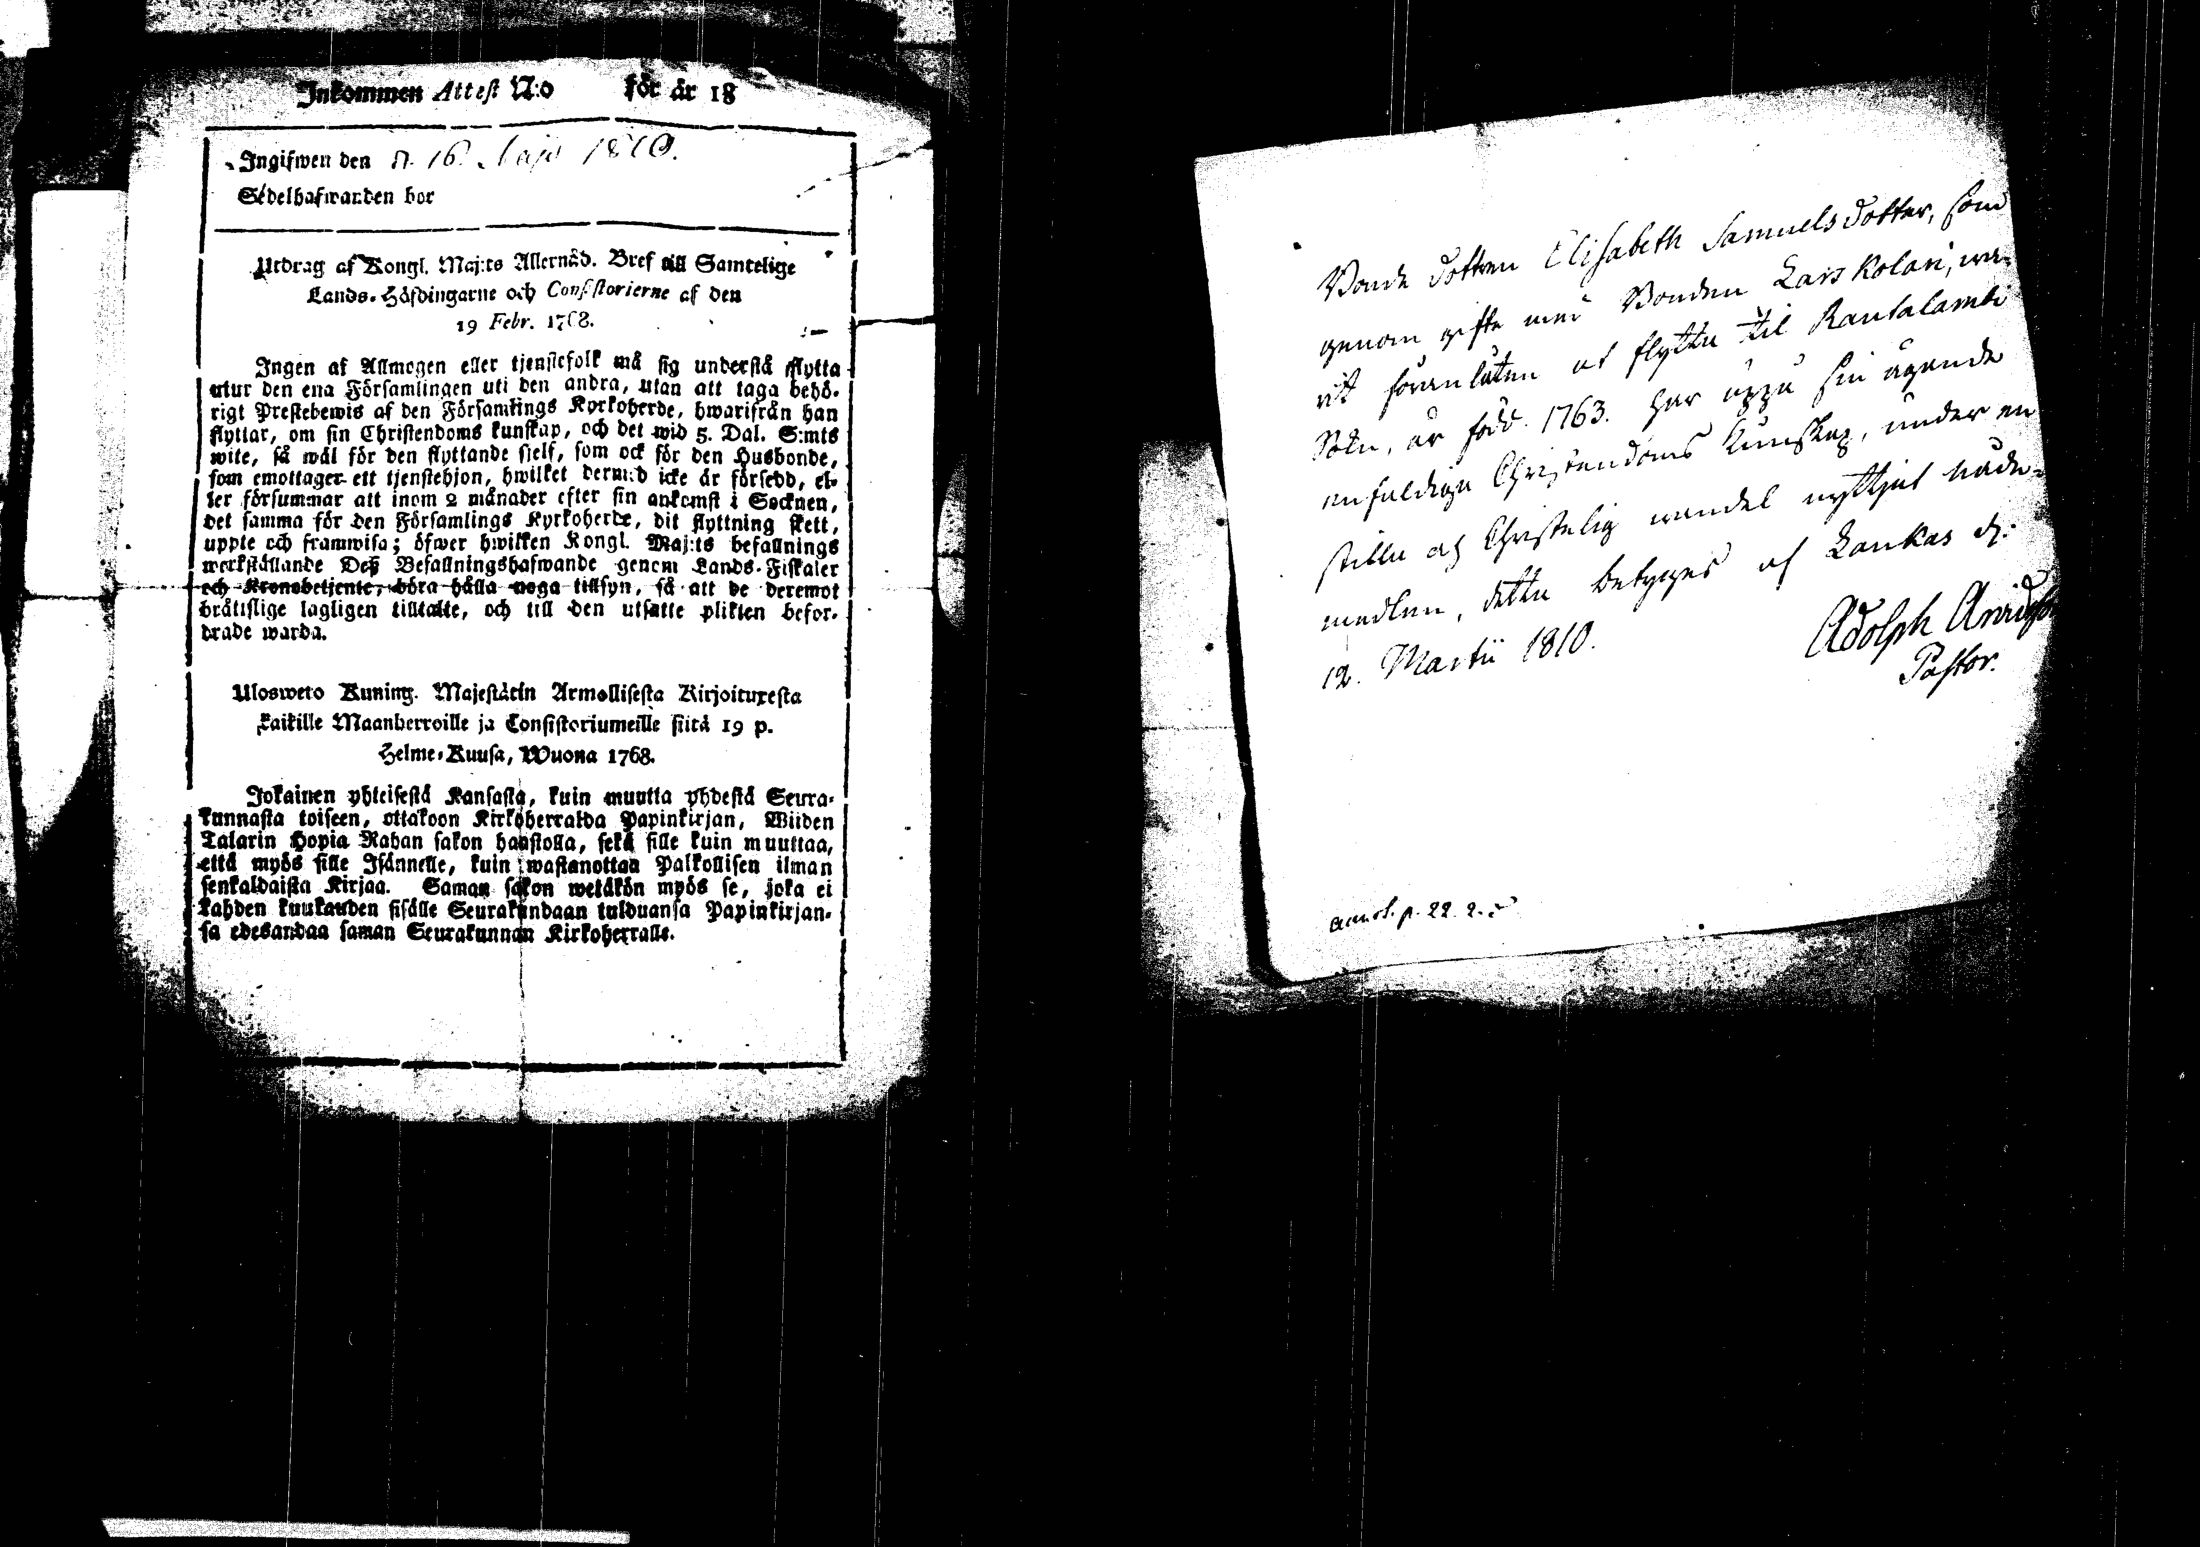 Inkommen Attest N:o för år 18
Ingifwen den d. 16. Maji 1810.
Sedelhafwanden bor
Utdrag af Kongl. Maj:ts Allernåd. Bref till Samtelige
Lands-Höfdingarne och Consistorierne af den
19 Febr. 1768.
Ingen af Allmogen eller tjenstefolk må sig understå flytta
utur den ena Församlingen uti den andra, utan att taga behö-
rigt Prestebewis af den Församlings Kyrkoherde, hwarifrån han
flyttar, om sin Christendoms kunskap, och det wid 5. Dal. S:mts
wite, så wäl för den flyttande sielf, som ock för den Husbonde,
som emottager ett tjenstehjon, hwilket dermed icke är försedd, el-
ler försummar att inom 2 månader efter sin ankomst i Socknen,
det samma för den Församlings Kyrkoherde, dit flyttning skett,
uppte och framwisa; öfwer hwilken Kongl. Maj:ts befallnings
werkställande Deß Befallningshafwande genom Lands-Fiskaler
och Kronobetjente, böra hålla noga tillsyn, så att de deremot
brätislige lagligen tilltalte, och till den utsatte plikten befor-
drade warda.
Ulosweto Kuning. Majestätin Armollisesta Kirjoituxesta
kaikille Maanherroille ja Consistoriumeille siitä 19 p.
Helme-Kuusa, Wuona 1768.
Jokainen yhteisestä Kansasta, kuin muutta yhdestä Seura-
kunnasta toiseen, ottakoon Kirkoherralda Papinkirjan, Wiiden
Talarin Hopia Rahan sakon haastolla, sekä sille kuin muuttaa,
että myös sille Isännelle, kuin wastanottaa Palkollisen ilman
senkaldaista Kirjaa. Saman sakon wetäkön myös se, joka ei
kahden kuukauden sisälle Seurakundaan tulduansa Papinkirjan-
sa edesandaa saman Seurakunnan Kirkoherralle.
Bonde dottren Elisabeth Samuels dotter, som
genom gifte med Bonden Lars Kolari, wa-
rit föranlåten at flytta til Rautalambi
Sokn, är född. 1763. har uppå sin ägande
enfaldiga Christendoms kunskap, under en
stilla och Christelig wandel nyttjat nåde-
medlen, detta betyges af Laukas d:
12. Martii 1810.
Adolph
Pastor.
annot. p. 22. 2.